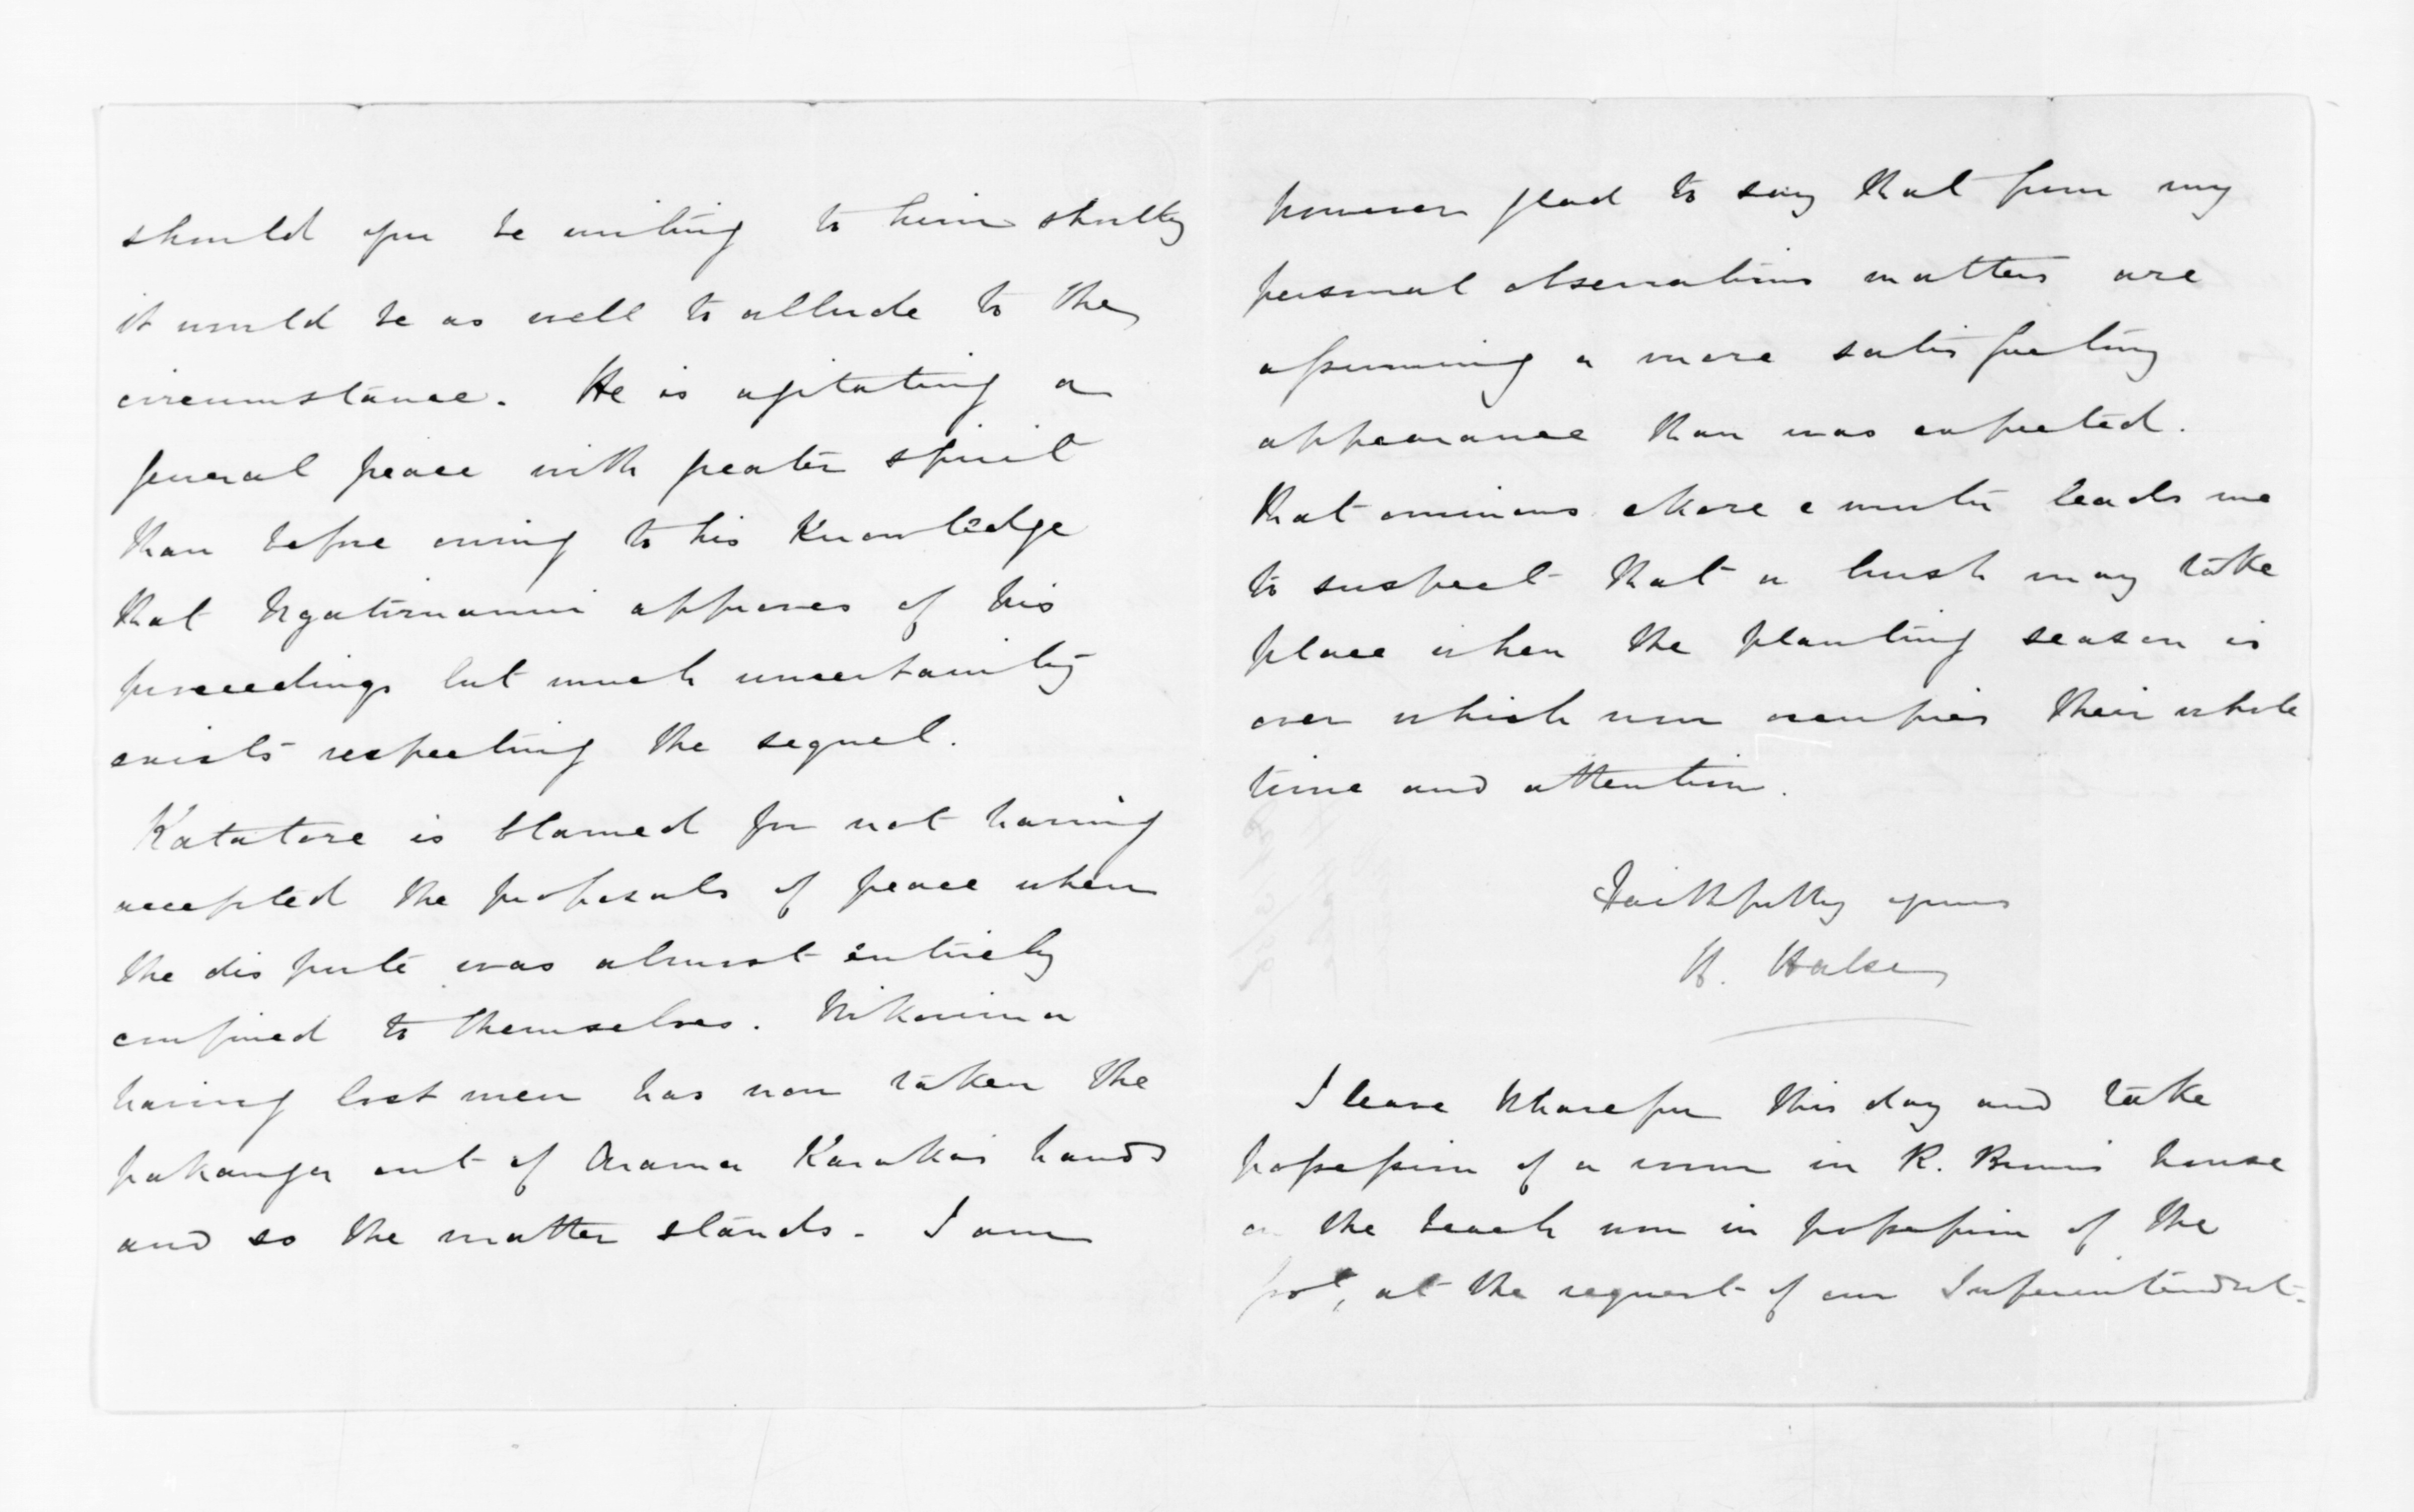 should you be writing to him shortly
it would be as well to allude to the
circumstance. He is agitating a
general peace with greater spirit
than before owing to his Knowledge
that Ngatiruanui approves of his
proceedings but much uncertainity
exists respecting the sequel.
Katatore is blamed for not having
accepted the proposals of peace when
the dispute was almost entirely
confined to themselves. Nikorima
having lost men has now taken the
pakanga out of Arama Karaka's hands
and so the matter stands. I am
however glad to say that from my
personal observations matters are
assuming a more satisfactory
appearance than was expected.
That ominous leads me
to suspect that a hush may take
place when the planting season is
over which now occupies their whole
time and attention.
Faithfully yours
H. Halse
I leave Wharepu this day and take
possession of a room in R. Brown's house
on the beach now in possession of the
govt, at the request of our Superintendent.